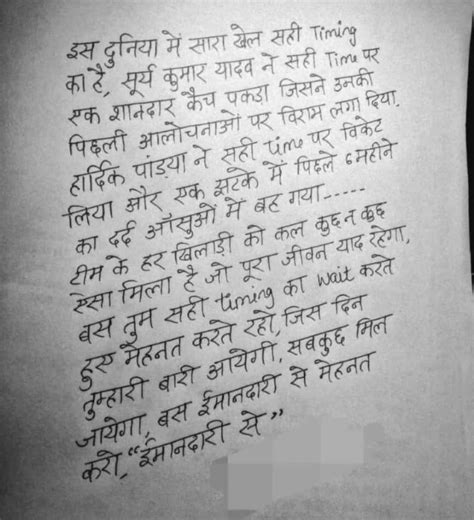 इस दुनिया में सारा खेल सही Timing
का है, सूर्य कुमार यादव ने सही Time पर
एक शानदार कैच पकड़ा जिसने उनकी
पिछली आलोचनाओं पर विराम लगा दिया.
हार्दिक पांड्या ने सही time पर विकेट
लिया और एक झटके में पिछले 6 महीने
का दर्द आँसुओं में बह गया.....
टीम के हर खिलाड़ी को कल कुछ न कुछ
ऐसा मिला है जो पूरा जीवन याद रहेगा,
बस तुम सही timing का wait करते
हुए मेहनत करते रहो, जिस दिन
तुम्हारी बारी आयेगी, सबकुछ मिल
जायेगा, बस ईमानदारी से मेहनत
करो, “ईमानदारी से”